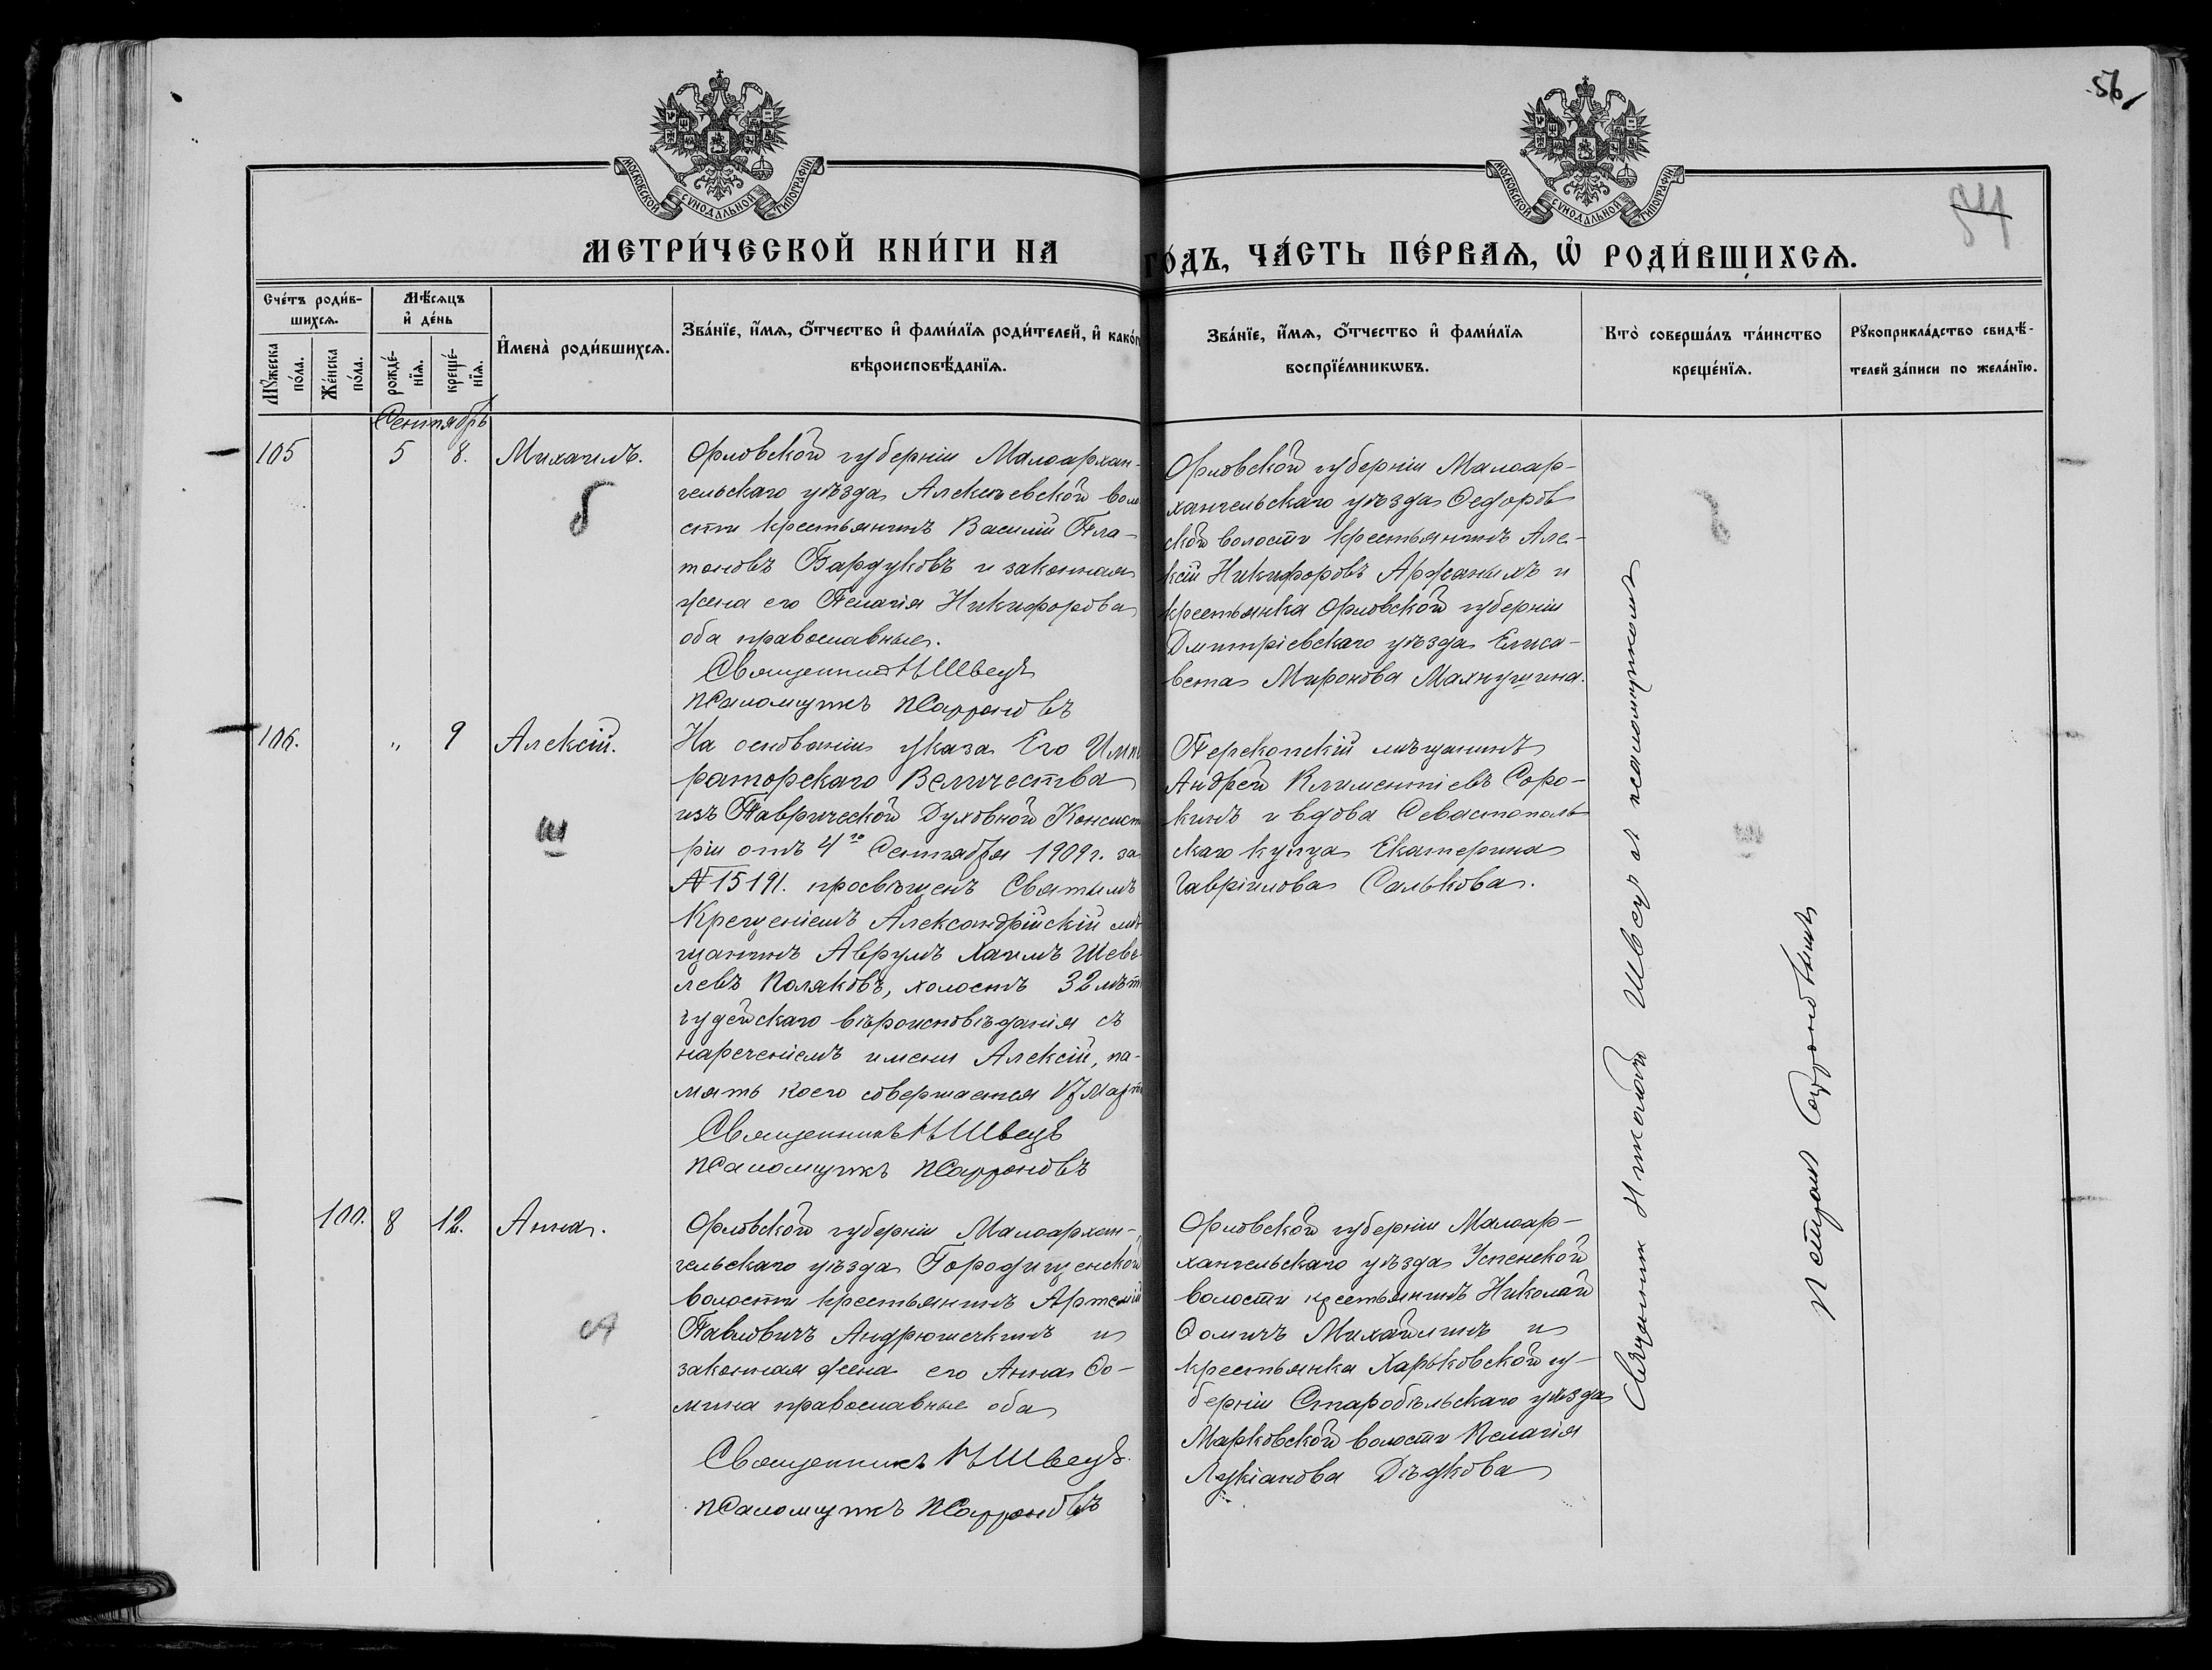 56
54
МОСКОВСКОЙ СѴНОДАЛЬНОЙ ТИПОГРАФІИ
МОСКОВСКОЙ СѴНОДАЛЬНОЙ ТИПОГРАФІИ
МЕТРИ́ЧЕСКОЙ КНИ́ГИ НА
ГО́ДЪ, ЧА́СТЬ ПЕ́РВАѦ, Ѡ҆ РОДИ́ВШИХСѦ.
Сче́тъ роди́в-
шихсѧ.
Мѣ́сѧцъ
и҆ де́нь
Мꙋ́жеска
по́ла.
Же́нска
по́ла.
рожде́-
нїѧ.
креще́-
нїѧ.
И҆мена̀ роди́вшихсѧ.
Зва́нїе, и҆́мѧ, ѻ҆́тчество и҆ фами́лїѧ роди́телей, и҆ како́г
вѣроисповѣ́данїѧ.
Зва́нїе, и҆́мѧ, ѻ҆́тчество и҆ фами́лїѧ
воспрїе́мникѡвъ.
Кто̀ соверша́лъ та́инство
креще́нїѧ.
Рꙋкоприкла́дство свидѣ́-
телей за́писи по жела́нїю.
Сентябрь
105 5 8. Михаилъ.
Орловской губерніи Малоархан-
гельскаго уѣзда Алексѣевской воло
сти крестьянинъ Василій Пла-
тоновъ Бардуковъ и законная
жена его Пелагія Никифорова
оба православные.
Священникъ Н Швецъ
псаломщикъ П Сафроновъ
Орловской губерніи Малоар-
хангельскаго уѣзда Ѳедоров
ской волости крестьянинъ Але-
ксій Никифоровъ Аржаныхъ и
крестьянка Орловской губерніи
Дмитріевскаго уѣзда Елиса-
вета Миронова Махнушина.
106. " 9 Алексій.
На основаніи указа Его Импе
раторскаго Величества
изъ Таврической Духовной Консист
ріи отъ 4го Сентября 1909 г. за
№ 15191. просвѣщенъ Святымъ
Крещеніемъ Александрійскій мѣ
щанинъ Аврумъ Хаимъ Шеве
левъ Поляковъ, холостъ 32 лѣтъ
іудейскаго вѣроисповѣданія съ
нареченіемъ имени Алексій, па-
мять коего совершается 17 Марта
Священникъ Н Швецъ
псаломщикъ П Сафроновъ
Перекопскій мѣщанинъ
Андрей Климентіевъ Соро-
кинъ и вдова Севастополь
скаго купца Екатерина
Гавріилова Салькова.
100. 8 12. Анна.
Орловской губерніи Малоархан-
гельскаго уѣзда Городищенской
волости крестьянинъ Артемій
Павловичъ Андрюшечкинъ и
законная жена его Анна Ѳо-
мина православные оба
Священникъ Н Швецъ.
псаломщикъ П Сафроновъ
Орловской губерніи Малоар-
хангельскаго уѣзда Успенской
волости крестьянинъ Николай
Ѳомичъ Михайлинъ и
крестьянка Харьковской гу-
берніи Старобѣльскаго уѣзда
Марковской волости Пелагія
Лукіанова Дѣдкова
Священник Николай Швец с псаломщиком
Петром Сафроновымъ